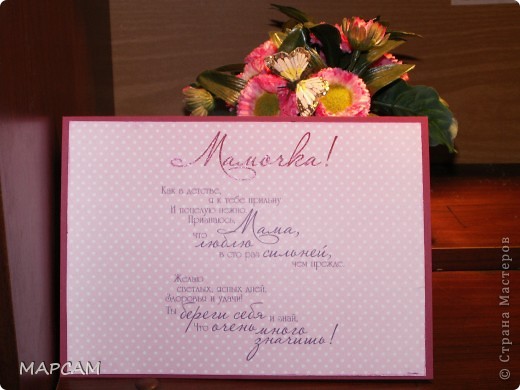 Мамочка!
Как в детстве,
я к тебе прильну
И поцелую нежно.
Признаюсь,
что Мама,
люблю
в сто раз сильней,
чем прежде.
Желаю
светлых, ясных дней,
Здоровья и удачи!
Ты береги себя и знай,
Что очень много
значишь!
МАРСАМ
© Страна Мастеров